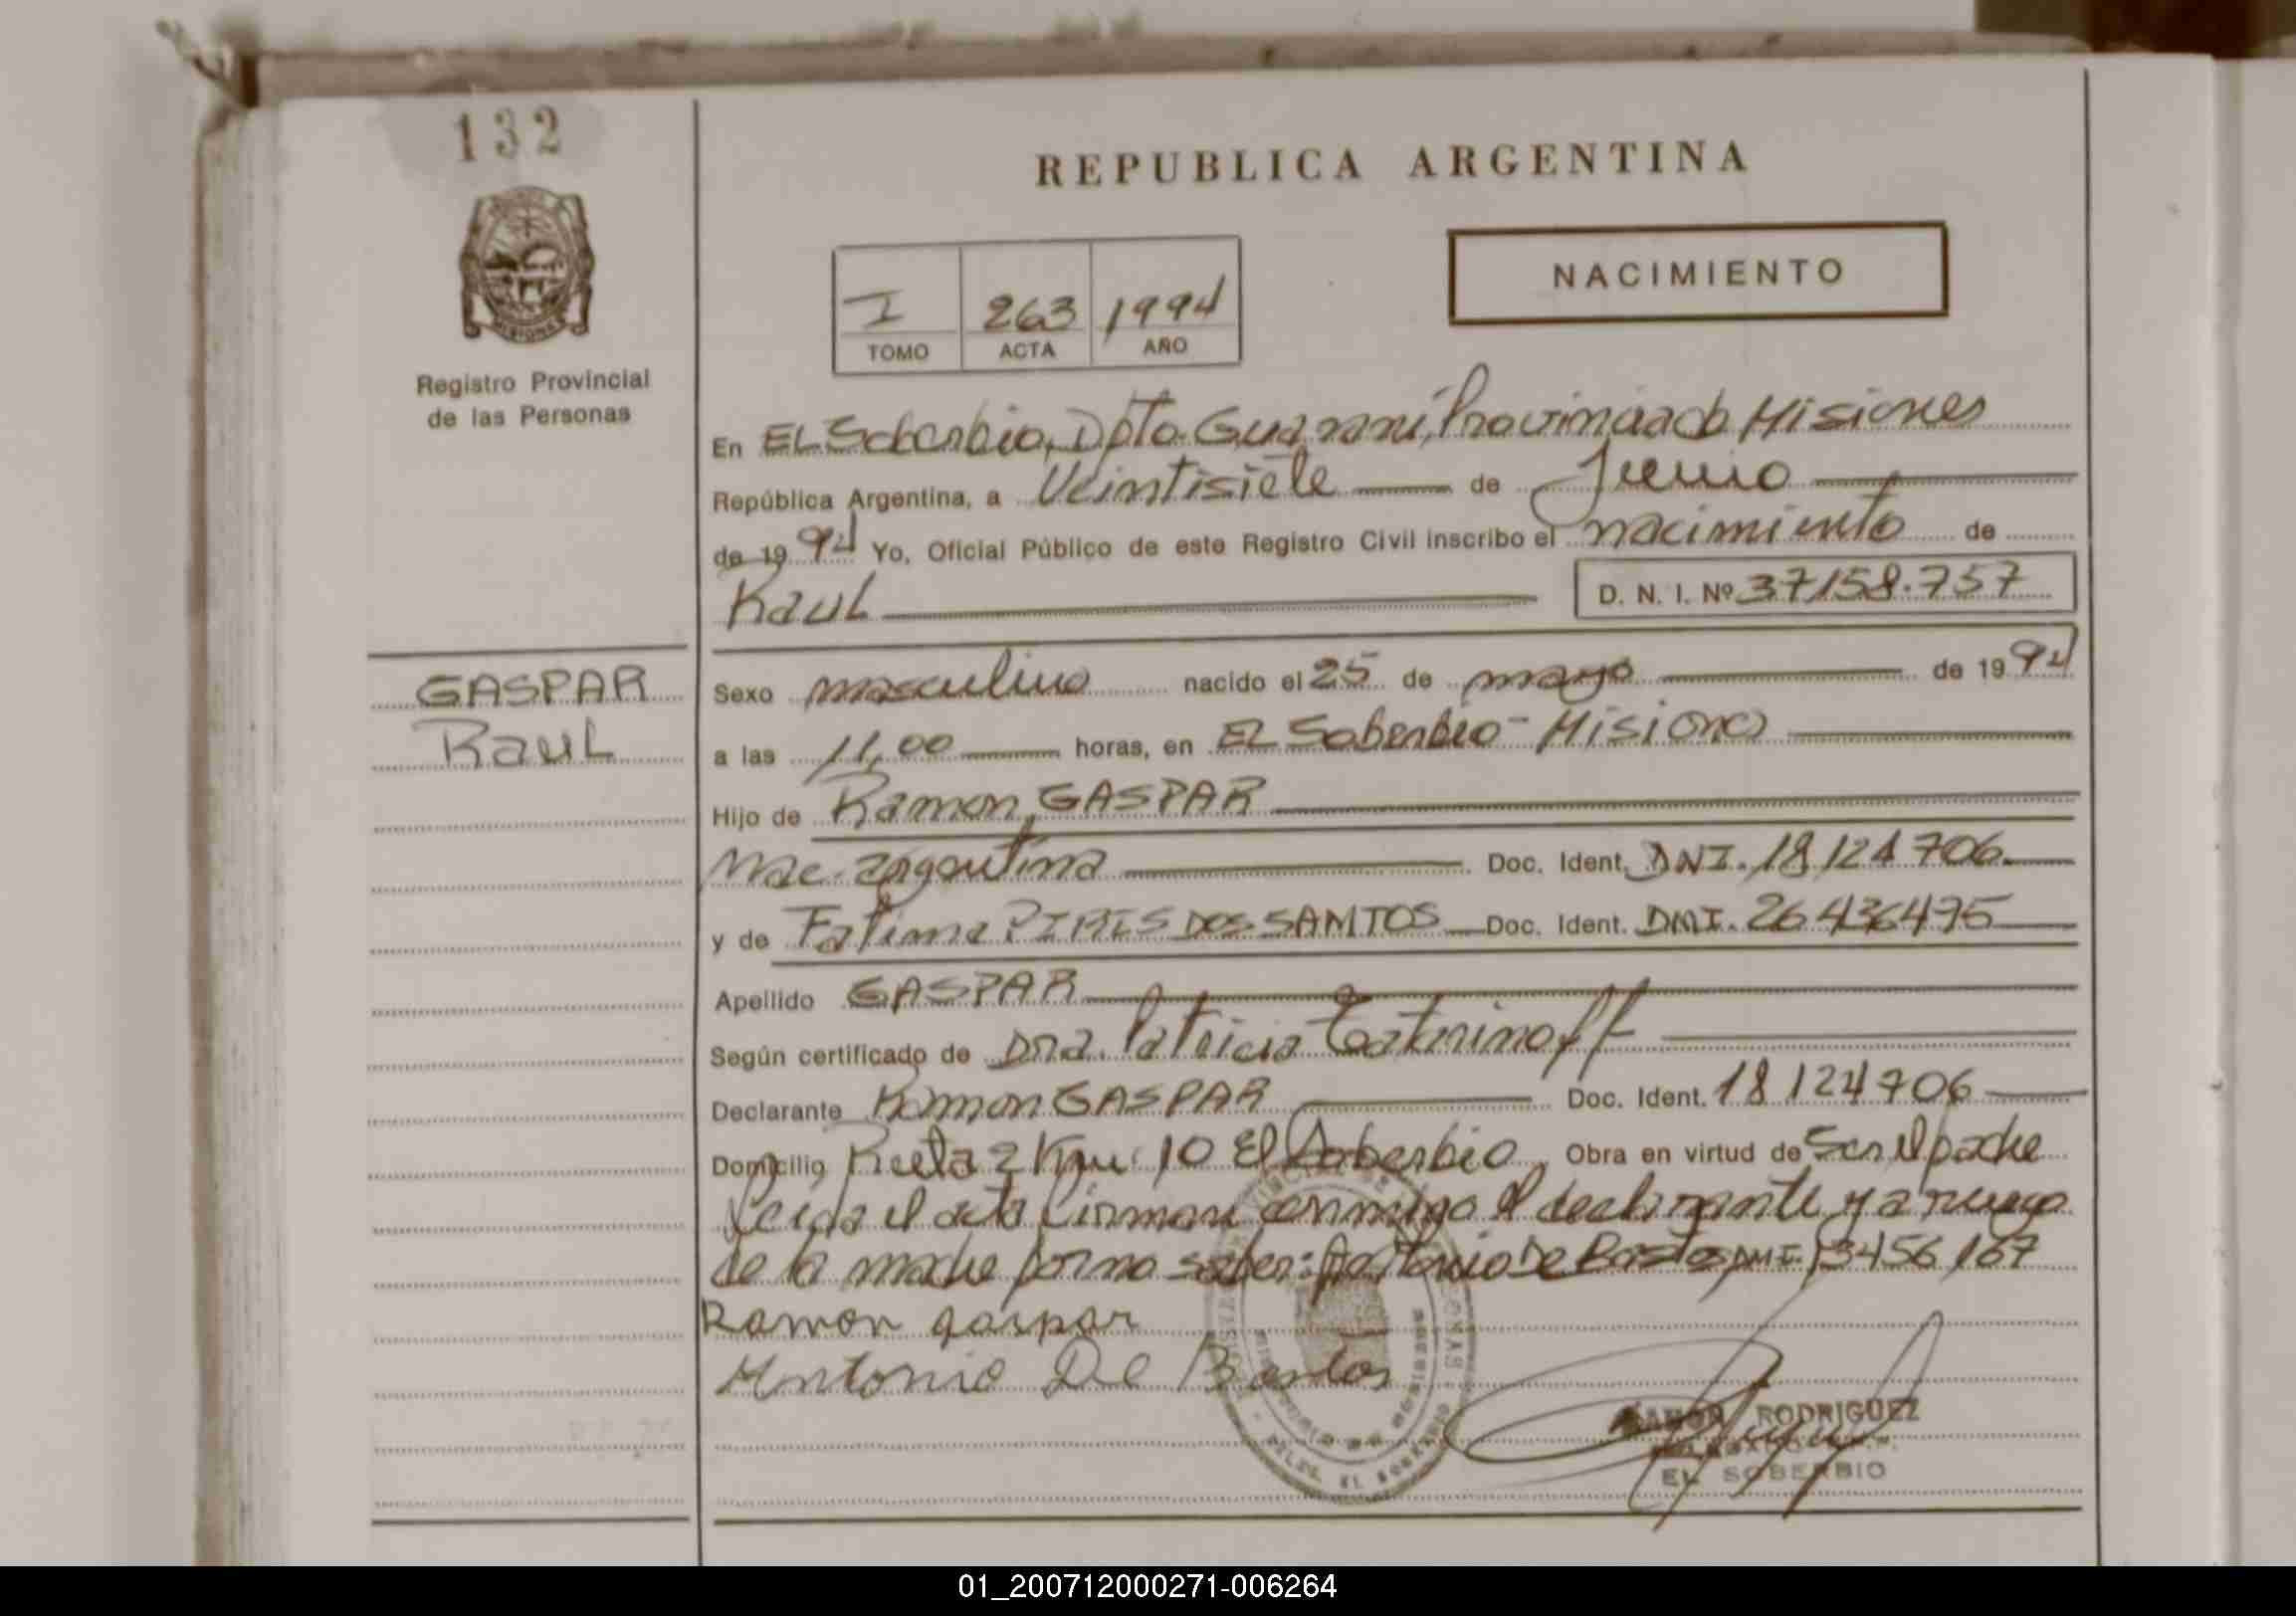 132
REPUBLICA ARGENTINA
MISIONES
Registro Provincial
de las Personas
I 263 1994
TOMO ACTA AÑO
NACIMIENTO
En EL Soberbio, Dpto. Guarani, Provincia de Misiones
República Argentina, a Veintisiete de Junio
de 1994 Yo, Oficial Público de este Registro Civil inscribo el nacimiento de
Raul D. N. I. Nº 37158.757
GASPAR
Raul
Sexo masculino nacido el 25 de mayo de 1994
a las 11,00 horas, en EL Soberbio - Misiones
Hijo de Ramon, GASPAR
Nac. argentina Doc. Ident. DNI. 18124706.
y de Fatima PIRES DOS SANTOS Doc. Ident. DNI. 26436495
Apellido GASPAR
Según certificado de Dra. Patricia
Declarante Ramon GASPAR Doc. Ident. 18124706
Domicilio Ruta 2 Km 10 El Soberbio Obra en virtud de Ser el padre
Leida el acta firman conmigo el declarante y a ruego
de la madre por no saber: Antonio De Bastos DNI. 13456167
Ramon gaspar
Antonio De Bastos
RAMON RODRIGUEZ
EL SOBERBIO
01_200712000271-006264